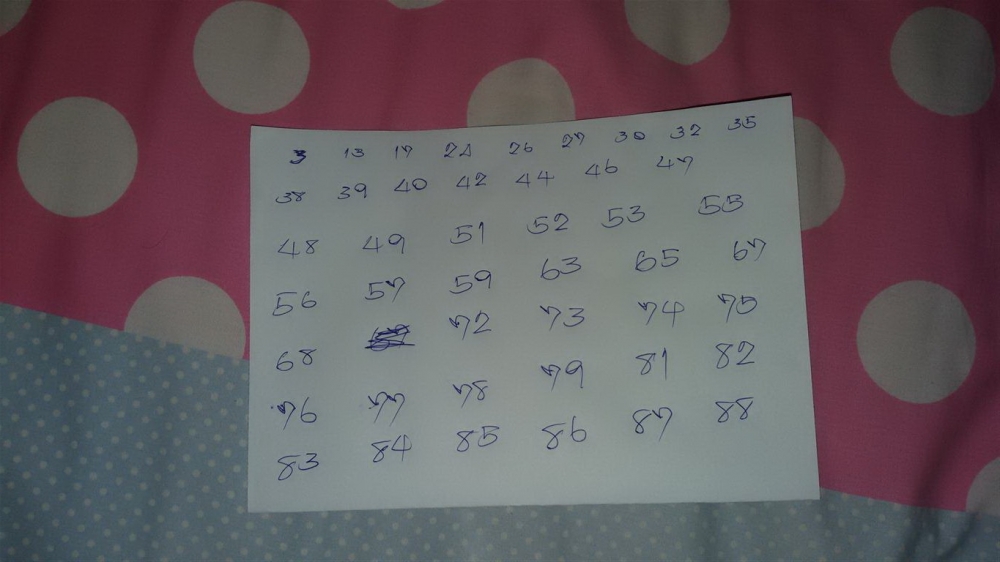 3 13 17 24 26 27 30 32 35
38 39 40 42 44 46 47
48 49 51 52 53 55
56 57 59 63 65 67
68 72 73 74 75
76 77 78 79 81 82
83 84 85 86 87 88